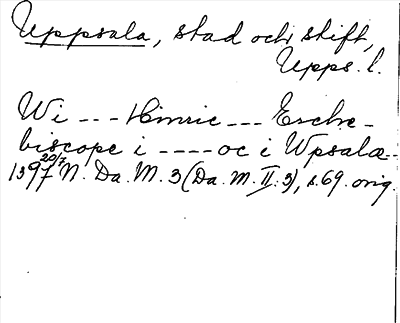 Uppsala, stad och stift,
Upps. l.
Wi --- Hinric --- Erche-
biscope i ---- oc i Wpsalæ--
1397 20/7 N. Da. M. 3 (Da. M. II: 3), s. 69. orig.